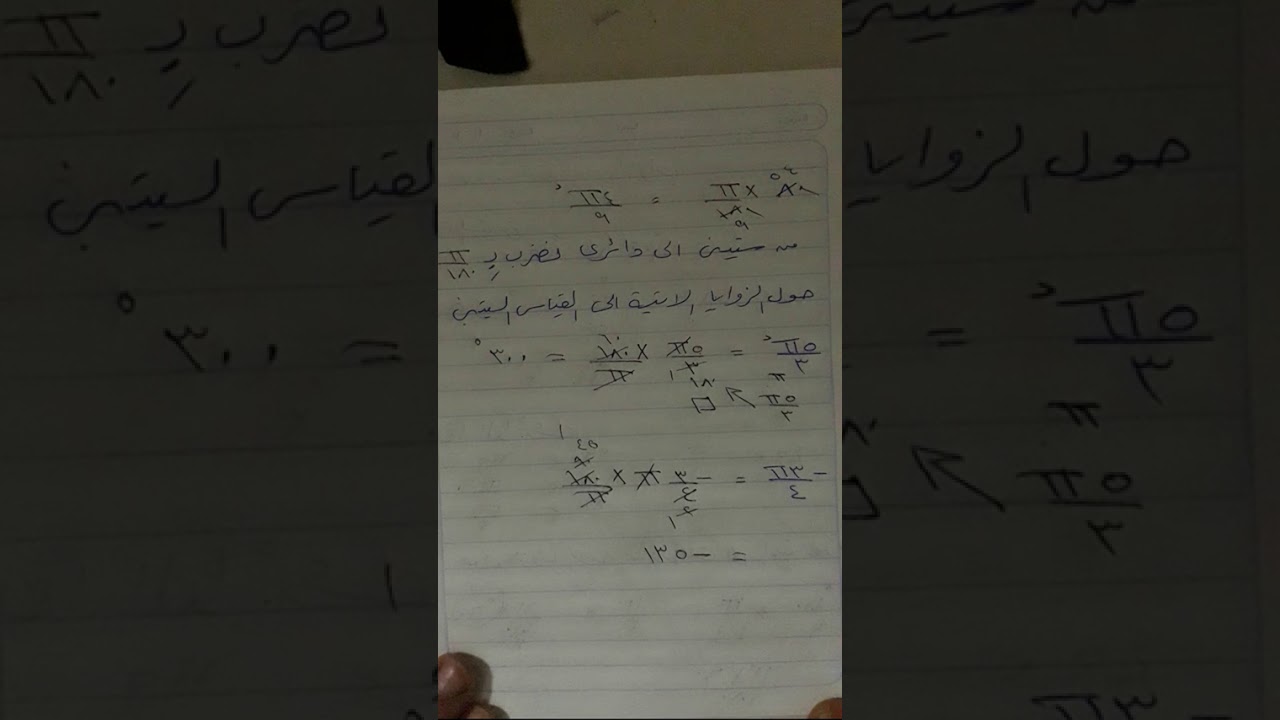 ٨٠° × π/١٨٠ = ٤π/٩ ء
من ستيني الى دائري نضرب بِ π/١٨٠
حول الزوايا الاتية الى القياس الستيني
٥π/٣ ء = ٥π/٣ × ١٨٠/π = ٣٠٠°
π ١٨٠
٥π/٣ □
-٣π/٤ = -٣/٤ π × ١٨٠/π
= -١٣٥